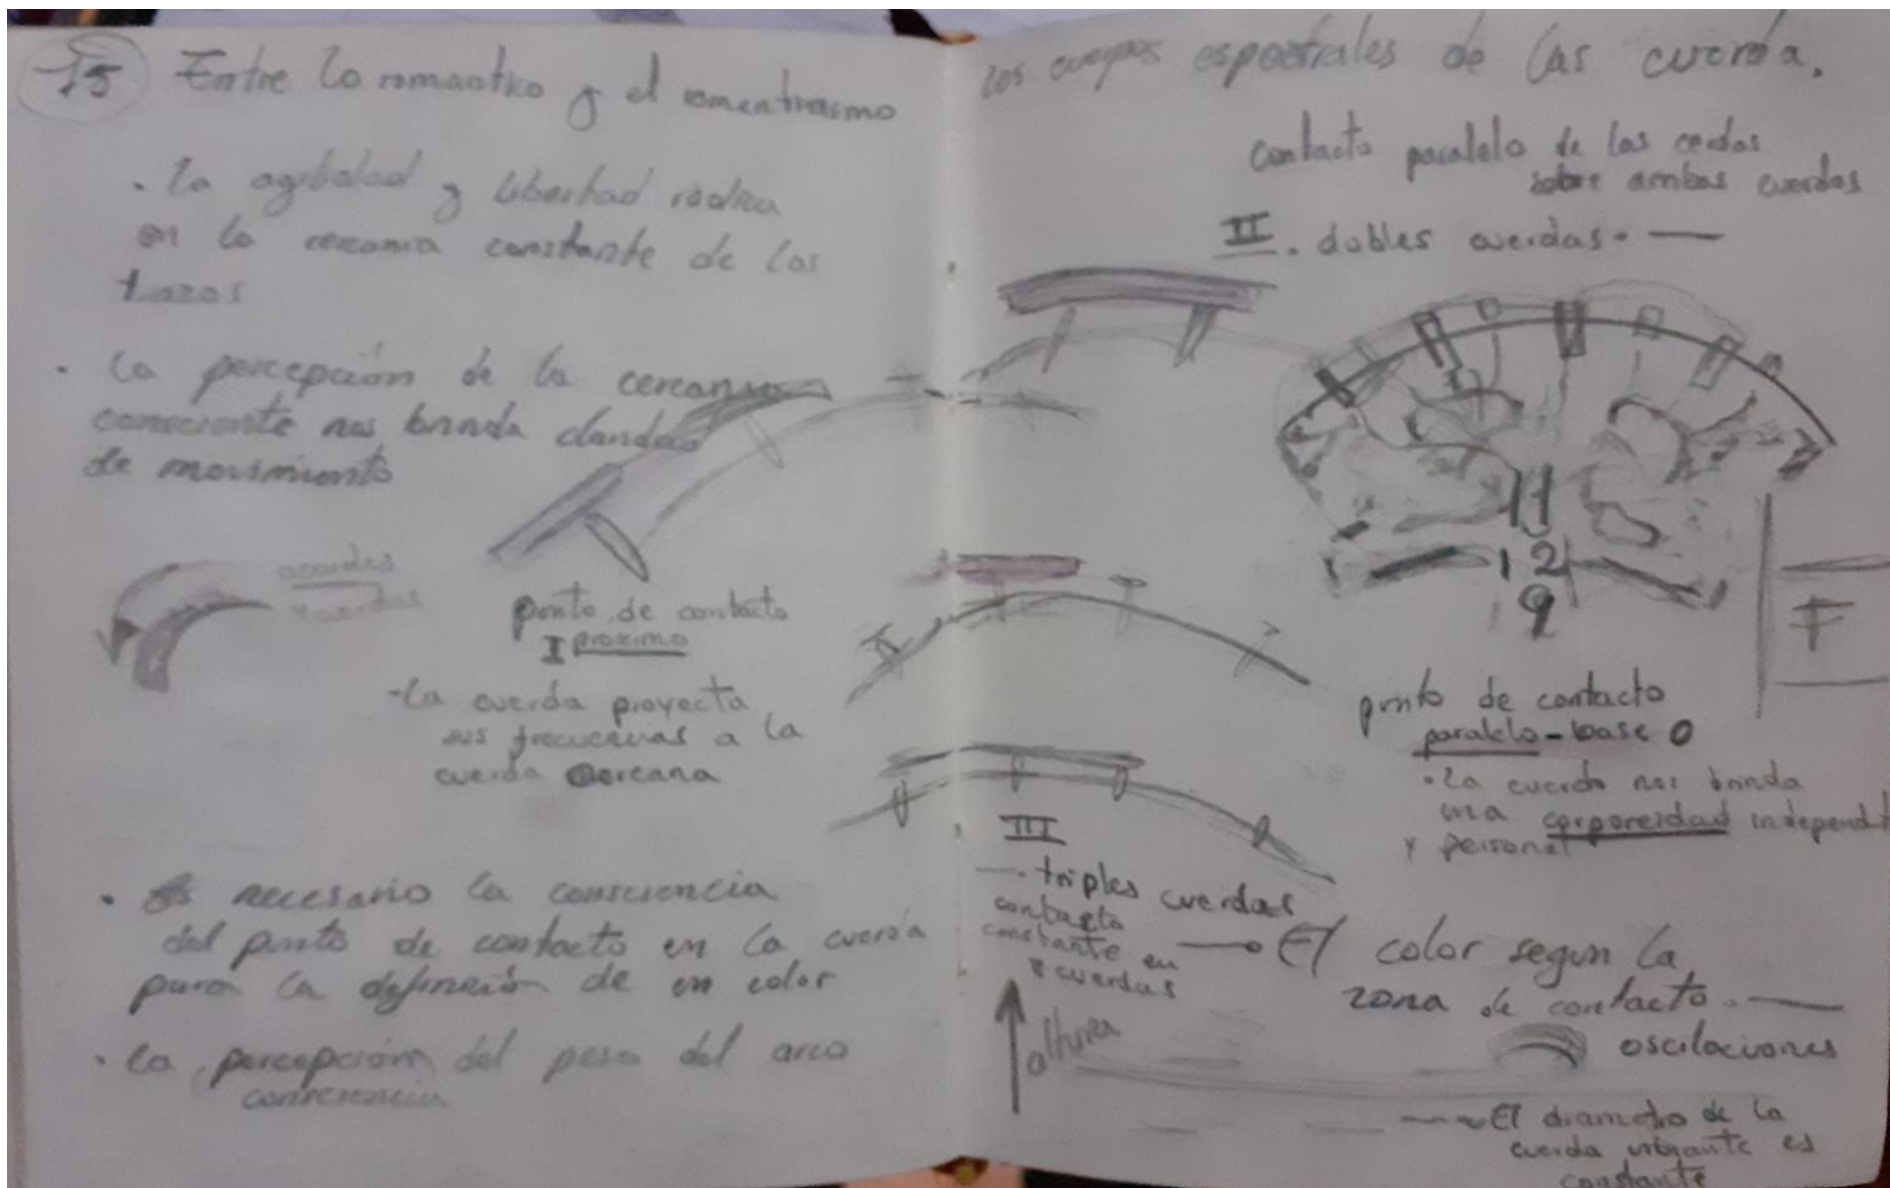 15 Entre lo romantico y el
. la agibalad y libertad radica
en la cercania constante de los
trazos
. la percepción de la cercania
consciente nos brinda claridad
de movimiento
acordes
punto de contacto
I proximo
-la cuerda proyecta
sus frecuencias a la
cuerda cercana
. Es necesario la consciencia
del punto de contacto en la cuerda
para la definición de un color
. la percepción del peso del arco
los cuerpos espectrales de las cuerda.
contacto paralelo de las cerdas
sobre ambas cuerdas
II. dobles cuerdas. —
12
9
F
punto de contacto
paralelo-base 0
. La cuerda nos brinda
una corporeidad independ
y personal
III
—. triples cuerdas
contacto
constante en
cuerdas
El color segun la
zona de contacto. —
oscilaciones
altura
El diametro de la
cuerda vibrante es
constante